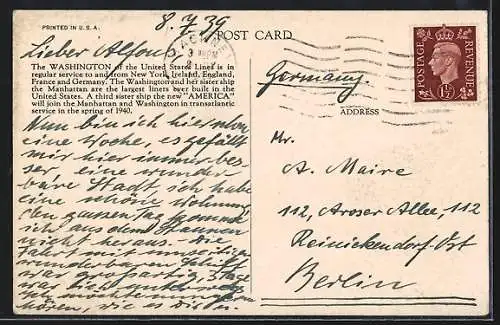 PRINTED IN U.S.A.
8.7.39
POST CARD
Lieber Alfons
The WASHINGTON of the United States Lines is in
regular service to and from New York, Ireland, England,
France and Germany. The Washington and her sister ship
the Manhattan are the largest liners ever built in the
United States. A third sister ship the new "AMERICA"
will join the Manhattan and Washington in transatlantic
service in the spring of 1940.
POSTAGE
REVENUE
1½
Germany.
ADDRESS
Nun bin ich hier schon
eine Woche, es gefällt
mir hier immer bes-
ser eine wunder
bare Stadt, ich habe
eine schöne Wohnung
den ganzen Tag komme
ich aus dem Staunen
nicht heraus. Die
Fahrt mit
war großartig, 3 Tage
war ich
hören, wie es
Mr.
A. Maire
112, Aroser Allee, 112
Reinickendorf-Ost
Berlin